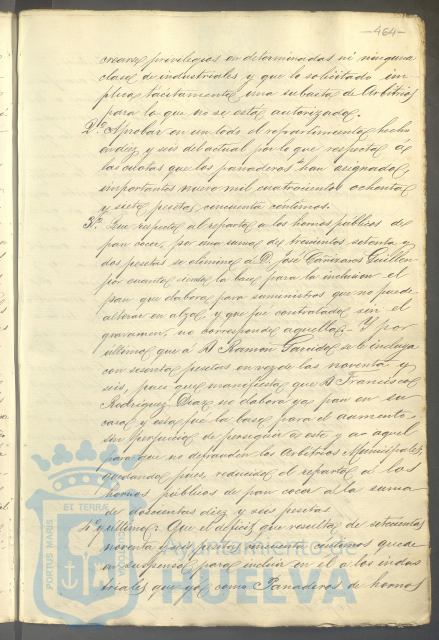 -464-
crearse privilegios en determinadas ni ninguna
clase de industriales y que lo solicitado im
plica tácitamente una subasta de Arbitrios
para lo que no se está autorizado.
2º Aprobar en un todo el repartimiento hecho
en diez y seis del actual por lo que respecta á
las cuotas que los panaderos han asignado,
importantes nueve mil cuatrocientos ochenta
y siete pesetas cincuenta centimos.
3º Que respecto al reparto a los hornos públicos de
pan cocer, por una suma de trescientos setenta y
dos pesetas se elimine á D. José Cañizares Guillen
por cuanto siendo la base para la inclusion el
pan que elabora para suministros que no puede
alterar en alza, y que fue contratado sin el
gravamen, no corresponde aquella. Y por
ultimo que á D. Ramon Garrido se le incluya
con sesenta pesetas en vez de las noventa y
seis, pues que manifiesta que D. Francisco
Rodriguez Diaz no elabora ya pan en su
casa y esta fué la base para el aumento
sin perjuicio de perseguir á este y a aquel
para que no defrauden los Arbitrios Municipales,
quedando pues, reducido el reparto á los
hornos públicos de pan cocer á la suma
de doscientas diez y seis pesetas
4º y ultimo: Que el déficit que resulta de setecientas
noventa y seis pesetas cincuenta centimos quede
en suspenso para incluir en el a los indus
triales que ya como Panaderos de hornos
PORTUS MARIS
ET TERRAE
CUSTODIA
Ayuntamiento de
HUELVA